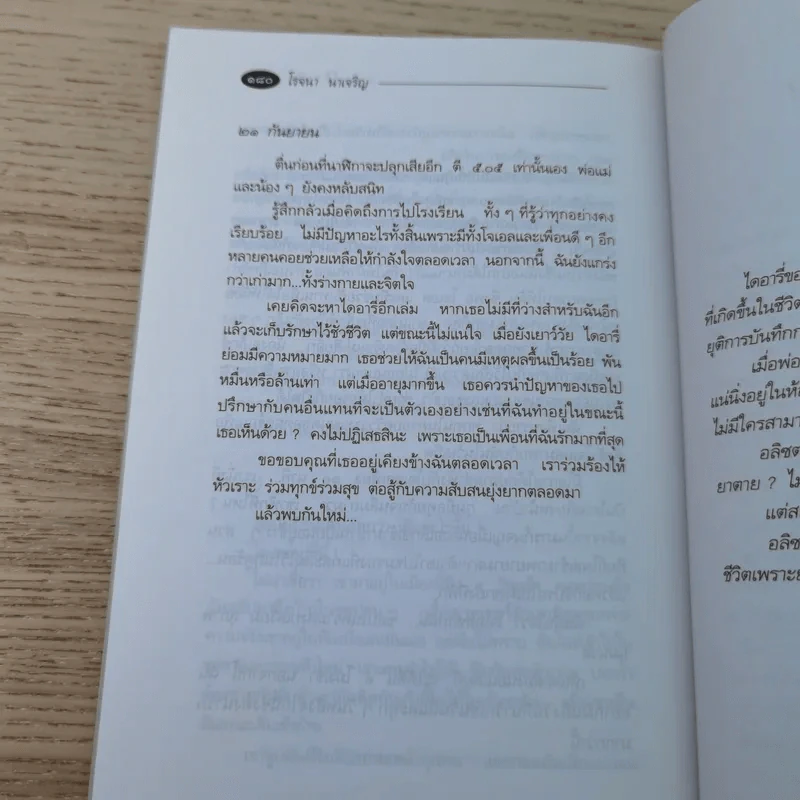 ๑๘๐ โรจนา นาเจริญ
๒๑ กันยายน
ตื่นก่อนที่นาฬิกาจะปลุกเสียอีก ตี ๕.๐๕ เท่านั้นเอง พ่อแม่
และน้อง ๆ ยังคงหลับสนิท
รู้สึกกลัวเมื่อคิดถึงการไปโรงเรียน ทั้ง ๆ ที่รู้ว่าทุกอย่างคง
เรียบร้อย ไม่มีปัญหาอะไรทั้งสิ้นเพราะมีทั้งโจเอลและเพื่อนดี ๆ อีก
หลายคนคอยช่วยเหลือให้กำลังใจตลอดเวลา นอกจากนี้ ฉันยังแกร่ง
กว่าเก่ามาก...ทั้งร่างกายและจิตใจ
เคยคิดจะหาไดอารี่อีกเล่ม หากเธอไม่มีที่ว่างสำหรับฉันอีก
แล้วจะเก็บรักษาไว้ชั่วชีวิต แต่ขณะนี้ไม่แน่ใจ เมื่อยังเยาว์วัย ไดอารี่
ย่อมมีความหมายมาก เธอช่วยให้ฉันเป็นคนมีเหตุผลขึ้นเป็นร้อย พัน
หมื่นหรือล้านเท่า แต่เมื่ออายุมากขึ้น เธอควรนำปัญหาของเธอไป
ปรึกษากับคนอื่นแทนที่จะเป็นตัวเองอย่างเช่นที่ฉันทำอยู่ในขณะนี้
เธอเห็นด้วย ? คงไม่ปฏิเสธสินะ เพราะเธอเป็นเพื่อนที่ฉันรักมากที่สุด
ขอขอบคุณที่เธออยู่เคียงข้างฉันตลอดเวลา เราร่วมร้องไห้
หัวเราะ ร่วมทุกข์ร่วมสุข ต่อสู้กับความสับสนยุ่งยากตลอดมา
แล้วพบกันใหม่...
ไดอารี่ขอ
ที่เกิดขึ้นในชีวิต
ยุติการบันทึกก
เมื่อพ่อ
แน่นิ่งอยู่ในห้
ไม่มีใครสามา
อลิซต
ยาตาย ? ไม
แต่ส
อลิซ
ชีวิตเพราะย